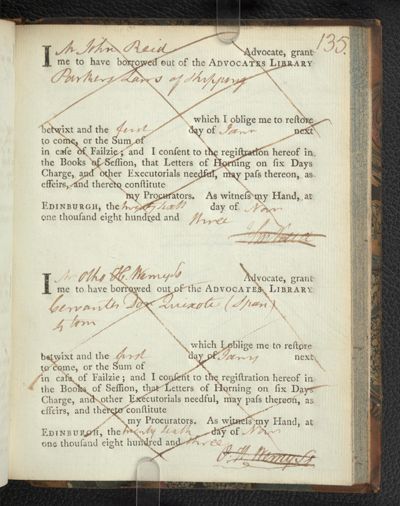 135.
I Mr John Reid Advocate, grant
me to have borrowed out of the ADVOCATES LIBRARY
Parkers Laws of Shipping
which I oblige me to restore
betwixt and the first day of Janr next
to come, or the Sum of
in case of Failzie; and I consent to the registration hereof in
the Books of Session, that Letters of Horning on six Days
Charge, and other Executorials needful, may pass thereon, as
effeirs, and thereto constitute
my Procurators. As witness my Hand, at
EDINBURGH, the twenty sixth day of Novr
one thousand eight hundred and
three
I Mr Otho H. Wemyss Advocate, grant
me to have borrowed out of the ADVOCATES LIBRARY
Cervantes Don Quixote (Span)
5 tom
which I oblige me to restore
betwixt and the first day of Janry next
to come, or the Sum of
in case of Failzie; and I consent to the registration hereof in
the Books of Session, that Letters of Horning on six Days
Charge, and other Executorials needful, may pass thereon, as
effeirs, and thereto constitute
my Procurators. As witness my Hand, at
EDINBURGH, the twenty sixth day of Novr
one thousand eight hundred and three
H. Wemyss